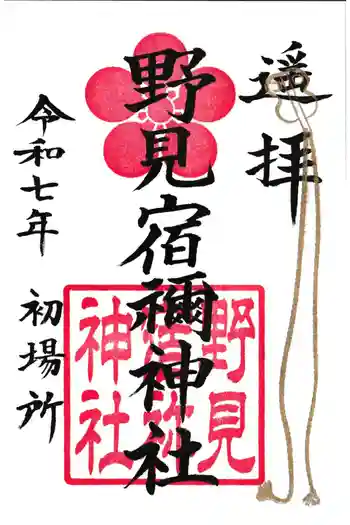 遥拝
野見宿禰神社
野見
宿祢
神社
令和七年
初場所